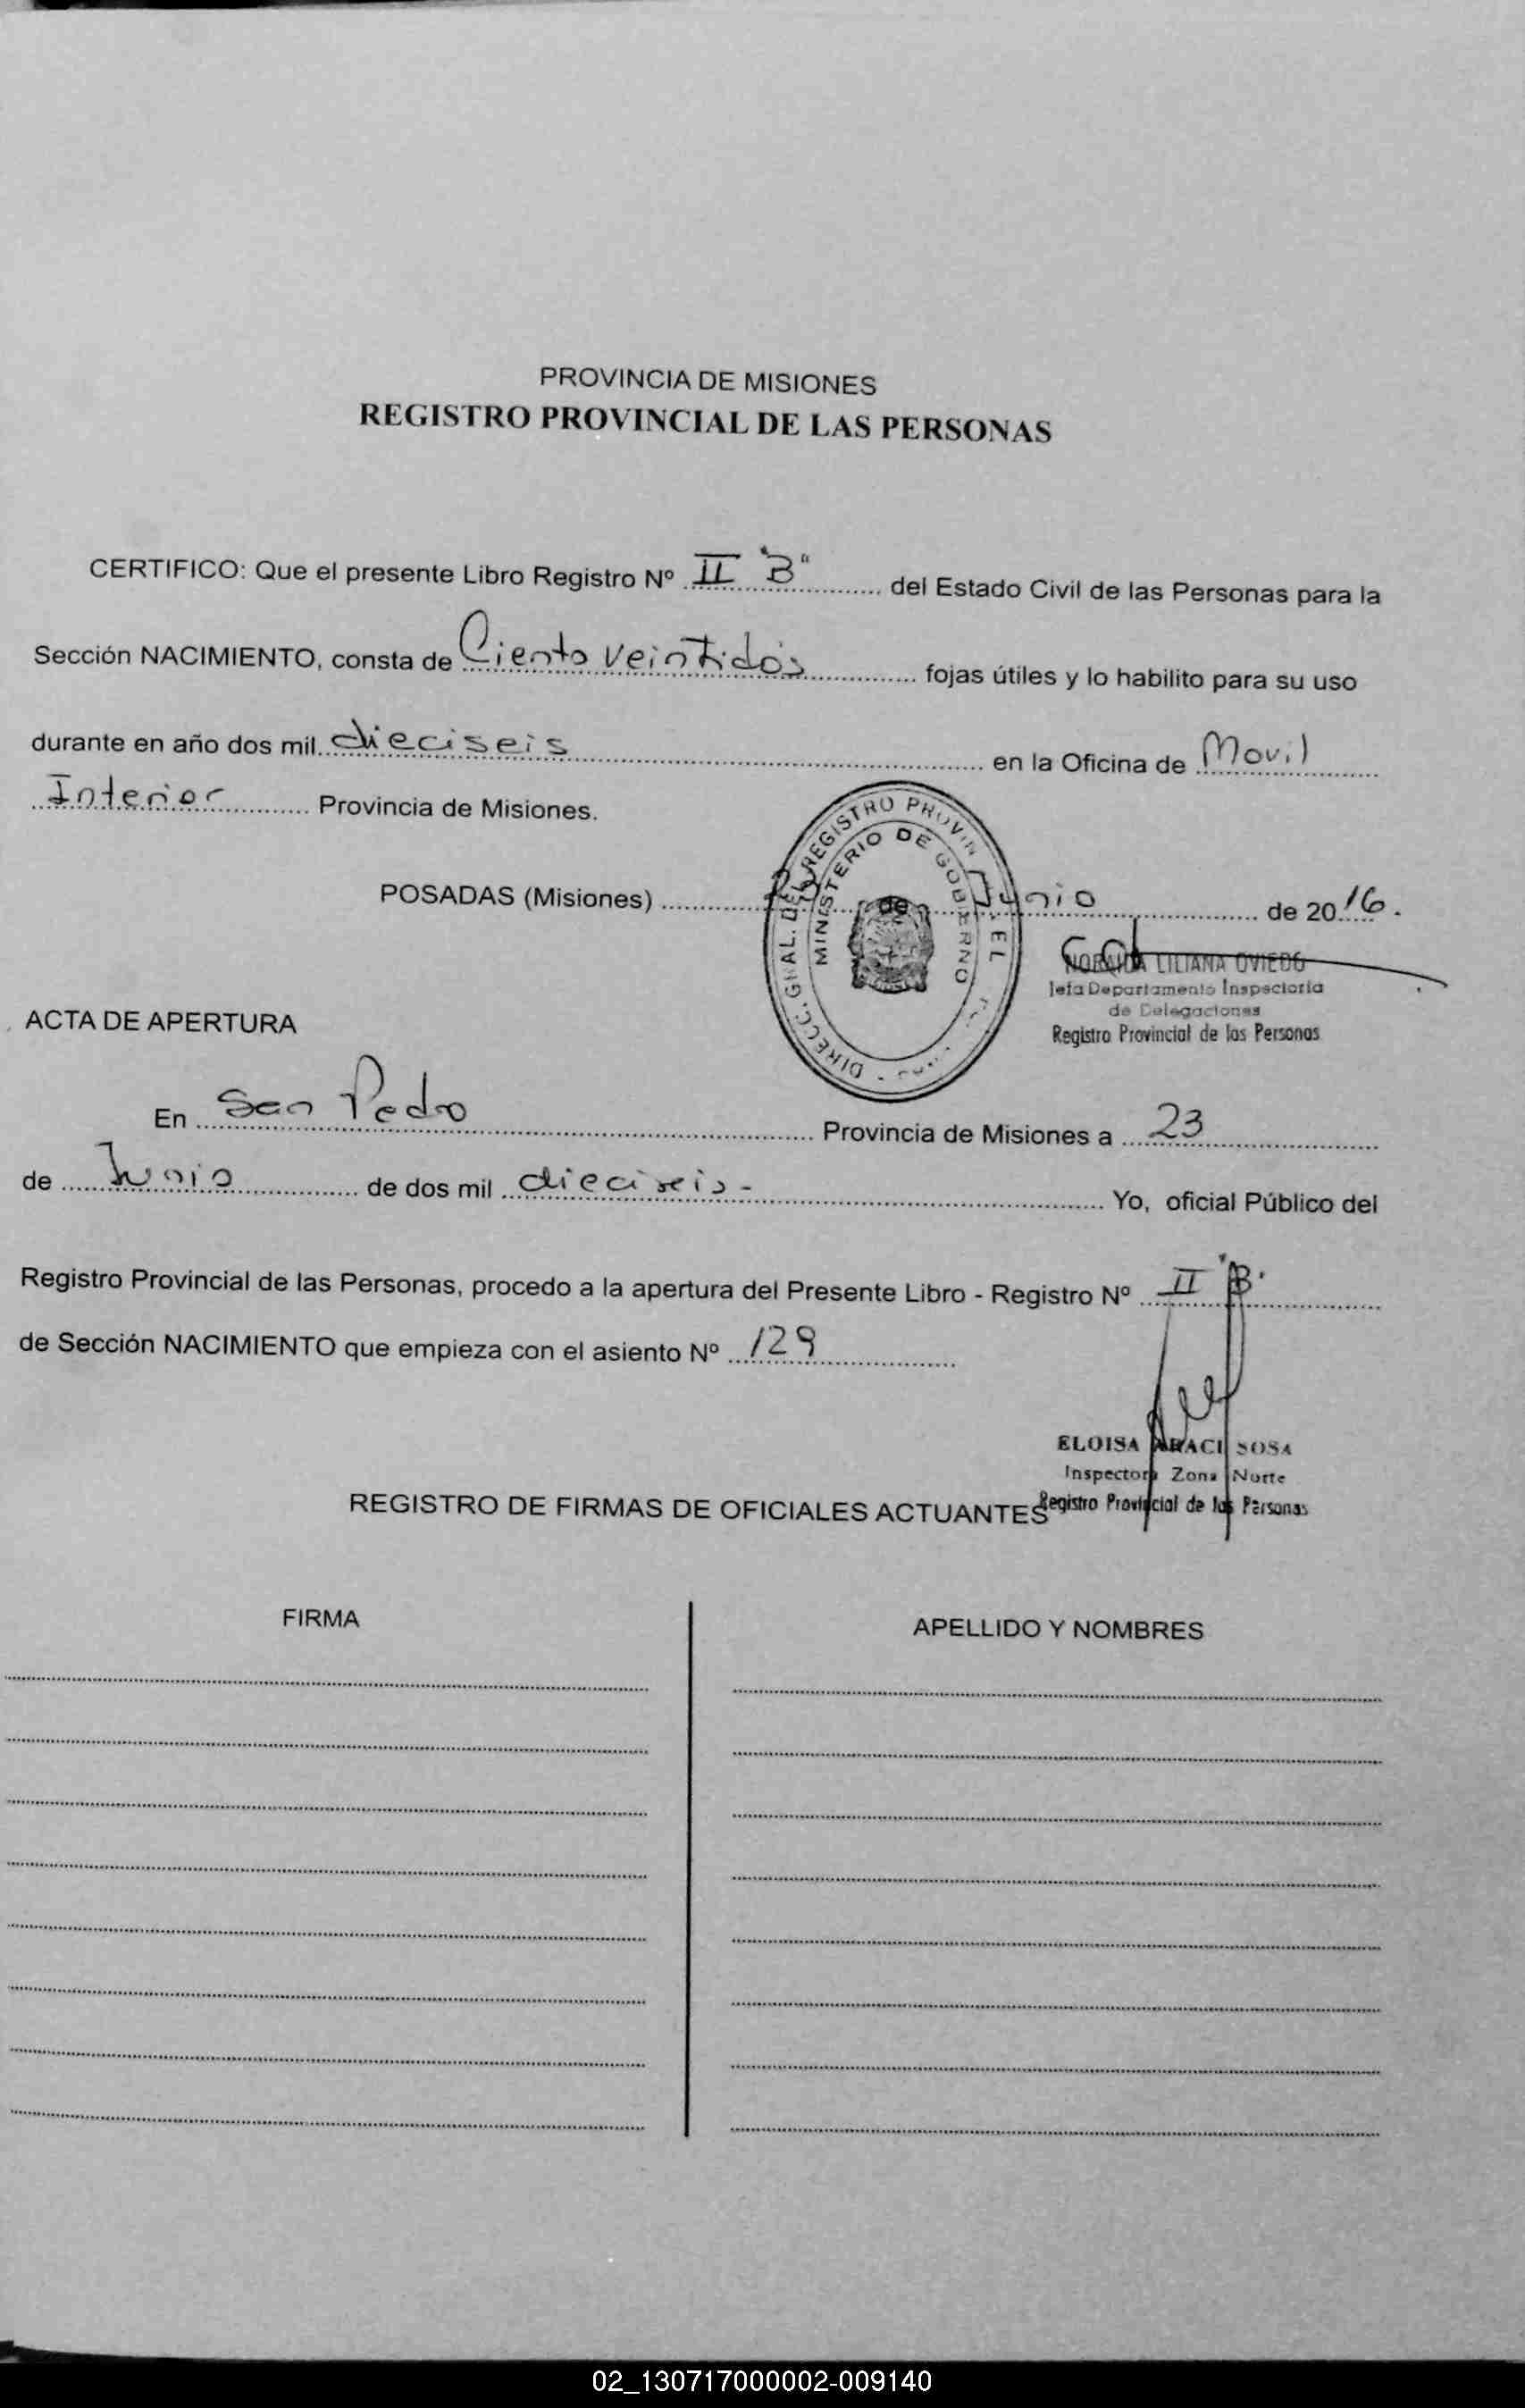 PROVINCIA DE MISIONES
REGISTRO PROVINCIAL DE LAS PERSONAS
CERTIFICO: Que el presente Libro Registro Nº II "B" del Estado Civil de las Personas para la
Sección NACIMIENTO, consta de Ciento veintidós fojas útiles y lo habilito para su uso
durante en año dos mil dieciseis en la Oficina de Movil
Interior Provincia de Misiones.
POSADAS (Misiones) de Junio de 2016.
DIRECC. GRAL. DEL REGISTRO PROVIN
MINISTERIO DE GOBIERNO
NORAIDA LILIANA OVIEDO
Jefa Departamento Inspectoria
de Delegaciones
Registro Provincial de las Personas
ACTA DE APERTURA
En San Pedro Provincia de Misiones a 23
de Junio de dos mil dieciseis - Yo, oficial Público del
Registro Provincial de las Personas, procedo a la apertura del Presente Libro - Registro Nº II "B"
de Sección NACIMIENTO que empieza con el asiento Nº 129
ELOISA ARACI SOSA
Inspectora Zona Norte
Registro Provincial de las Personas
REGISTRO DE FIRMAS DE OFICIALES ACTUANTES
FIRMA
APELLIDO Y NOMBRES
02_130717000002-009140